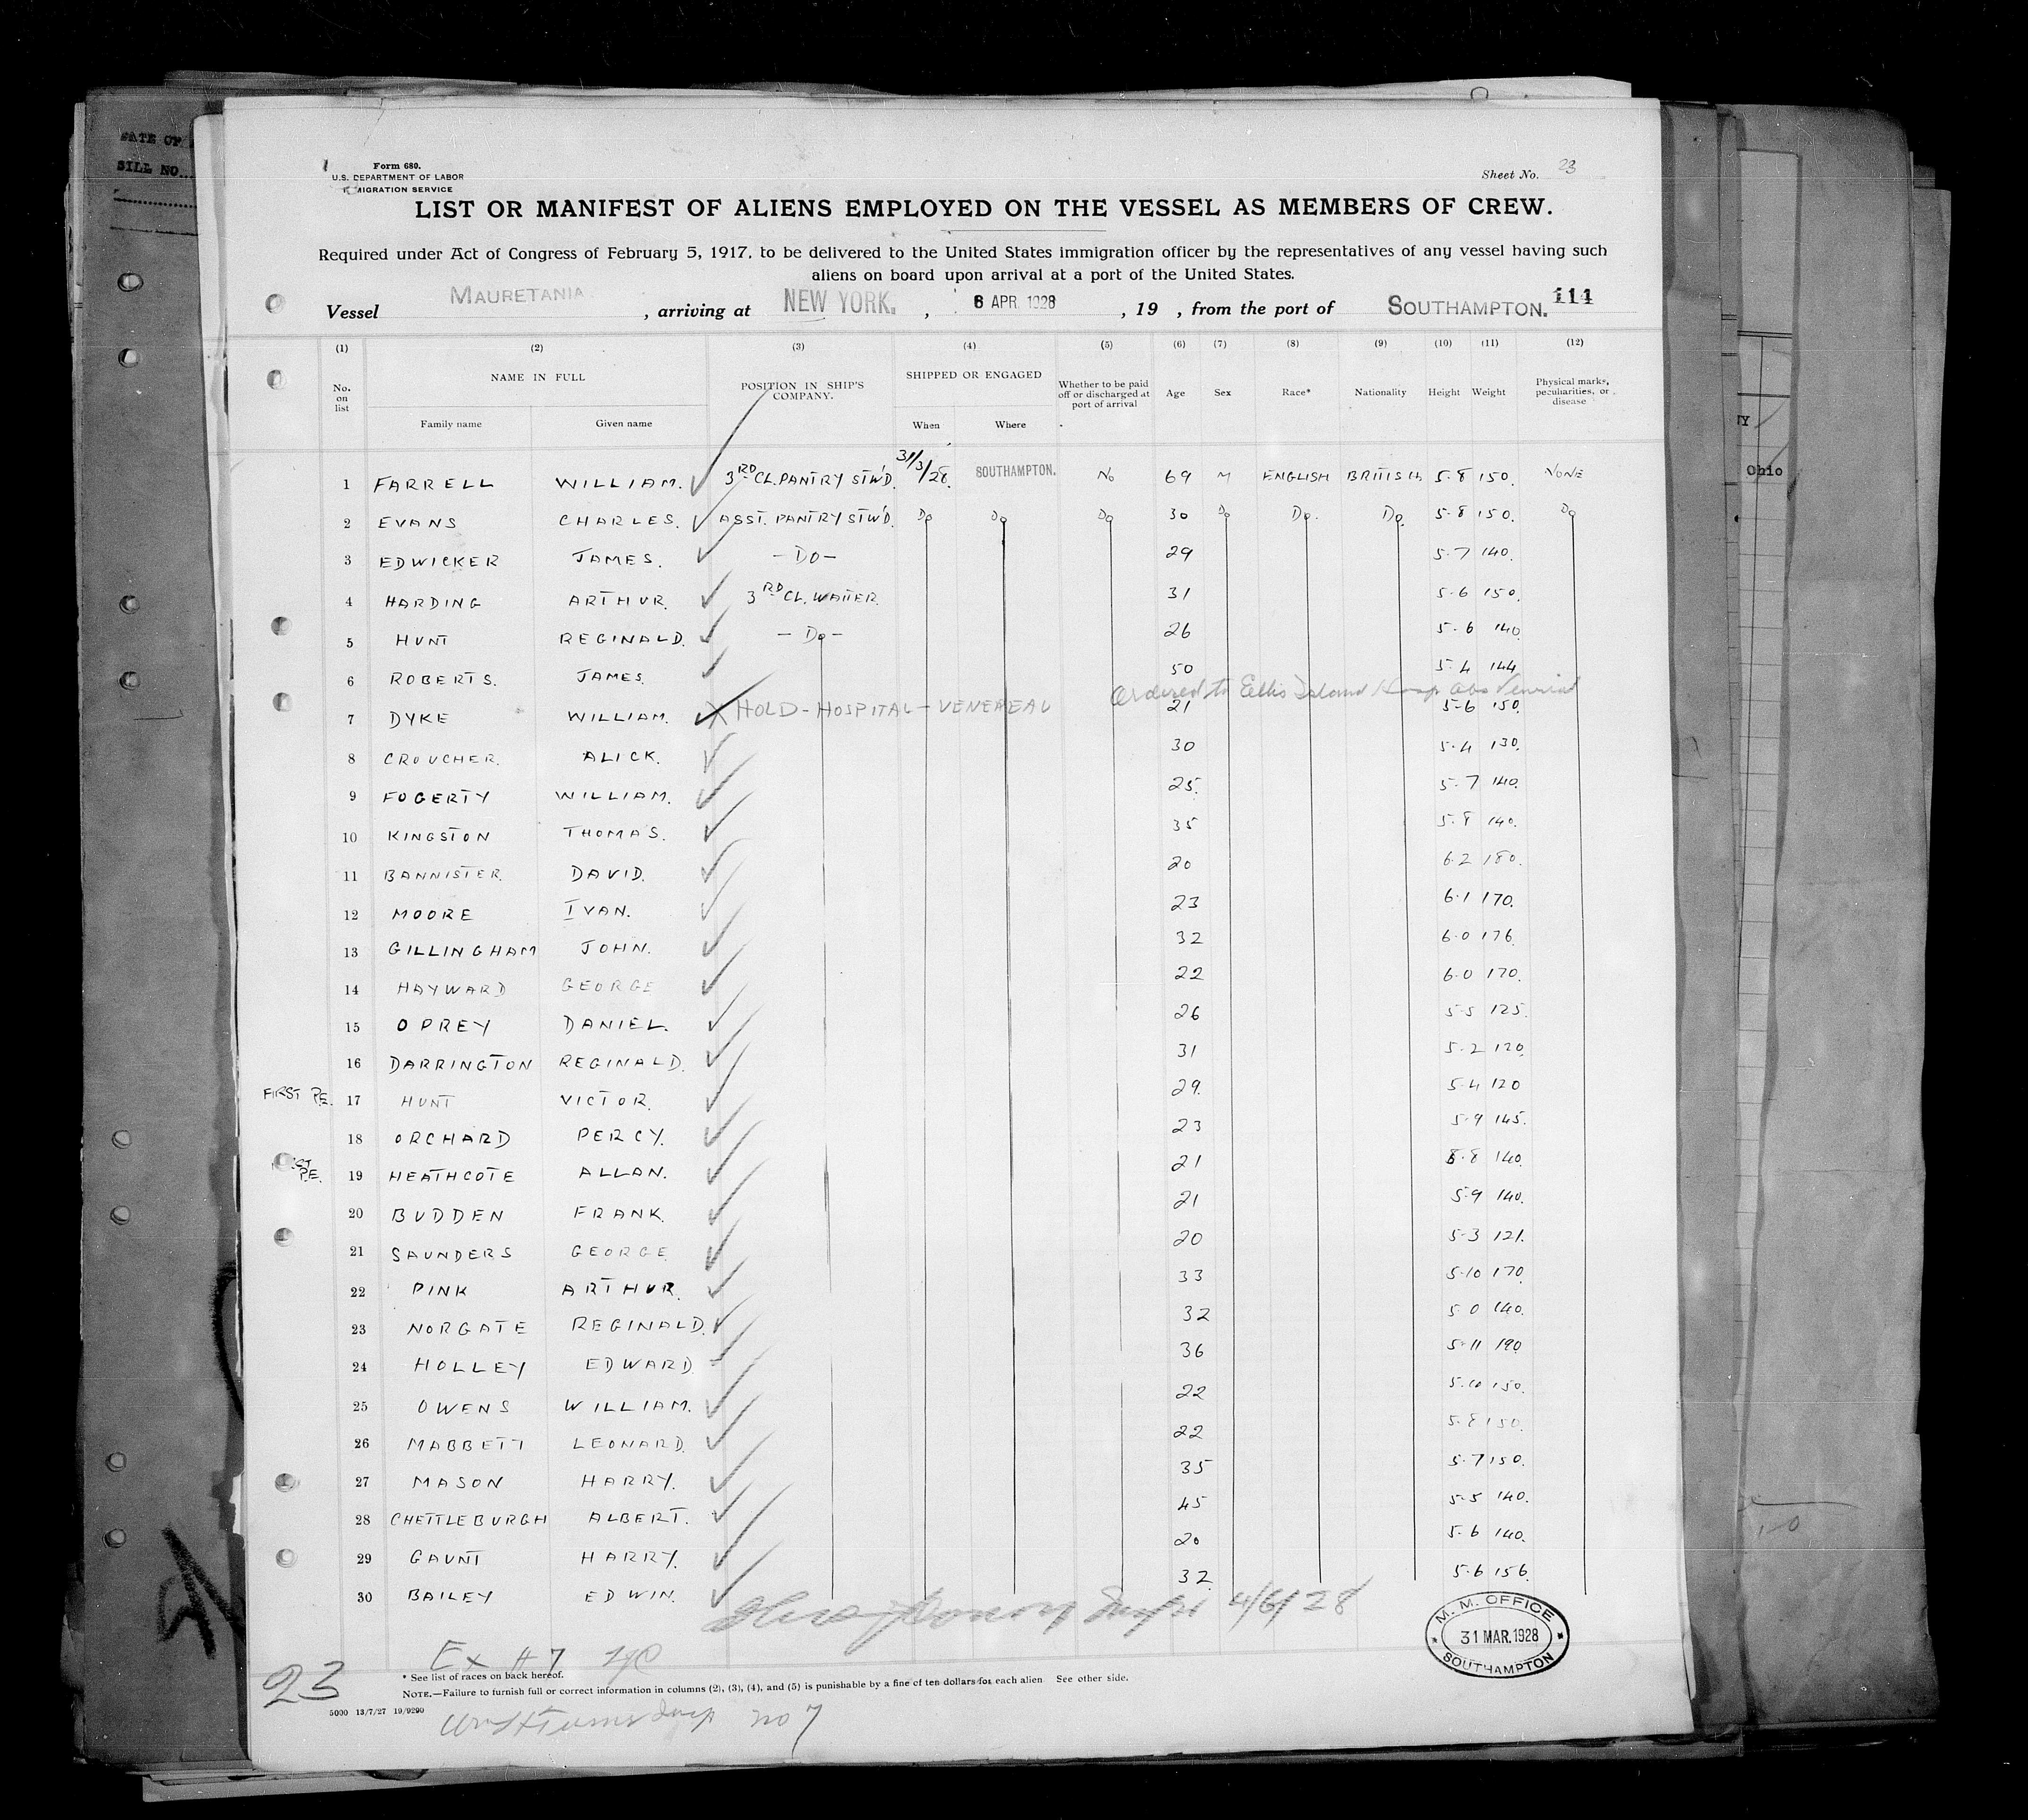 DATE OF
BILL NO.
Form 680.
U.S. DEPARTMENT OF LABOR
IMMIGRATION SERVICE
Sheet No. 23
LIST OR MANIFEST OF ALIENS EMPLOYED ON THE VESSEL AS MEMBERS OF CREW.
Required under Act of Congress of February 5, 1917, to be delivered to the United States immigration officer by the representatives of any vessel having such
aliens on board upon arrival at a port of the United States.
Vessel MAURETANIA. , arriving at NEW YORK. , 6 APR. 1928 , 19 , from the port of SOUTHAMPTON. 114
(1) (2) (3) (4) (5) (6) (7) (8) (9) (10) (11) (12)
No. on list NAME IN FULL Family name Given name POSITION IN SHIP'S COMPANY. SHIPPED OR ENGAGED When Where Whether to be paid off or discharged at port of arrival Age Sex Race* Nationality Height Weight Physical marks, peculiarities, or disease
1 FARRELL WILLIAM. 3RD CL. PANTRY STW'D. 31/3/28. SOUTHAMPTON. No 69 M ENGLISH BRITISH 5.8 150. NONE
2 EVANS CHARLES. ASST. PANTRY STW'D. Do Do Do 30 Do Do. Do. 5.8 150. Do
3 EDWICKER JAMES. - DO - 29 5.7 140.
4 HARDING ARTHUR. 3RD CL. WAITER. 31 5.6 150.
5 HUNT REGINALD. - Do - 26 5.6 140.
6 ROBERTS. JAMES. 50 5.4 144
7 DYKE WILLIAM. HOLD - HOSPITAL - VENEREAL Ordered to Ellis Island Hosp 21 5-6 150.
8 CROUCHER. ALICK. 30 5.4 130.
9 FOGERTY WILLIAM. 25. 5.7 140.
10 KINGSTON THOMAS. 35 5.8 140.
11 BANNISTER. DAVID. 20 6.2 180.
12 MOORE IVAN. 23 6.1 170.
13 GILLINGHAM JOHN. 32 6.0 176.
14 HAYWARD GEORGE 22 6.0 170.
15 OPREY DANIEL. 26 5.5 125.
16 DARRINGTON REGINALD. 31 5.2 120.
FIRST P.E. 17 HUNT VICTOR. 29. 5.4 120
18 ORCHARD PERCY. 23 5.9 145.
P.E. 19 HEATHCOTE ALLAN. 21 5.8 140.
20 BUDDEN FRANK. 21 5.9 140.
21 SAUNDERS GEORGE 20 5.3 121.
22 PINK ARTHUR. 33 5.10 170.
23 NORGATE REGINALD. 32 5.0 140.
24 HOLLEY EDWARD 36 5.11 190.
25 OWENS WILLIAM. 22 5.10 150.
26 MABBETT LEONARD. 22 5.8 150.
27 MASON HARRY. 35 5.7 150.
28 CHETTLEBURGH ALBERT. 45 5.5 140.
29 GAUNT HARRY. 20 5.6 140.
30 BAILEY EDWIN. 32. 5.6 156.
4/6/28
M. M. OFFICE
31 MAR. 1928
SOUTHAMPTON
Ex # 7
23
* See list of races on back hereof.
NOTE.—Failure to furnish full or correct information in columns (2), (3), (4), and (5) is punishable by a fine of ten dollars for each alien See other side.
5000 13/7/27 19/9290
no 7
Ohio